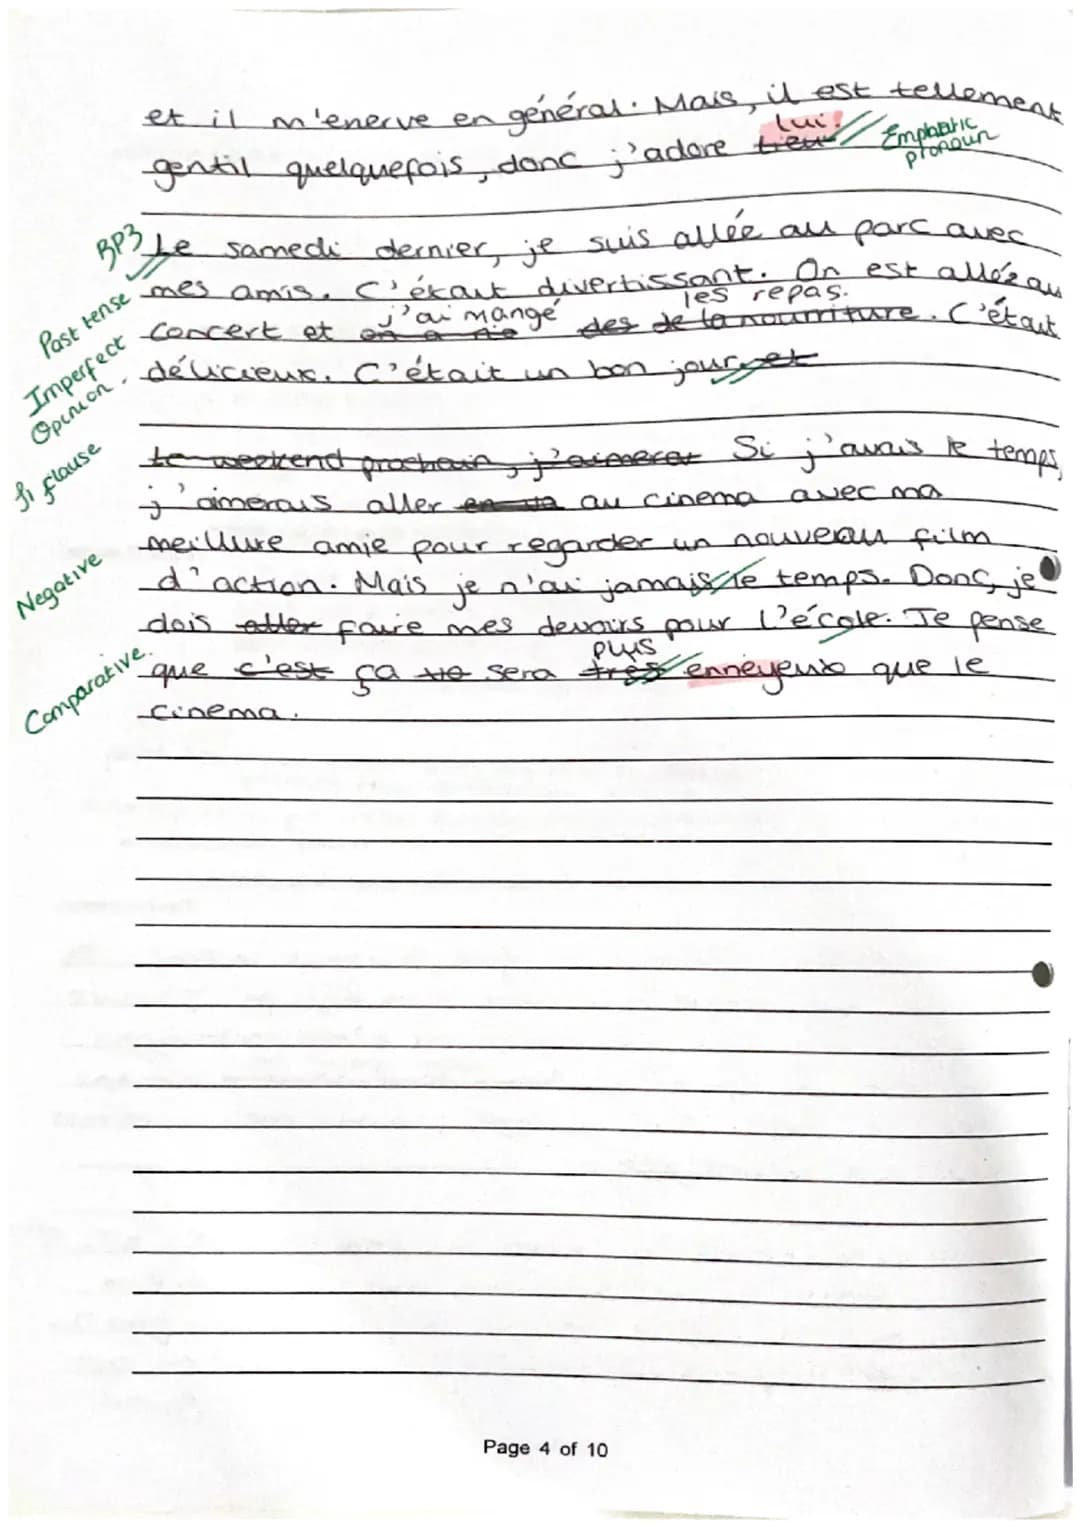 et il m'enerve en général. Mais, il est tellement
lui! Emphatic pronoun
gentil quelquefois, donc j'adore
BP3 Le samedi dernier, je suis allée au parc avec
Past tense mes amis. C'était divertissant. On est alléz au
j'ai mangé les repas.
Imperfect concert et on a des de la nourriture. C'était
Opinion. délicieux. C'était un bon jour, et
Le weekend prochain, j'aimerai Si j'avais le temps,
Si clause j'aimerais aller au cinema avec ma
meillure amie pour regarder un nouveau film
Negative d'action. Mais je n'ai jamais le temps. Donc, je
dois aller faire mes devoirs pour l'école. Je pense
plus
Comparative. que c'est ça sera très enneyeux que le
cinema.
Page 4 of 10